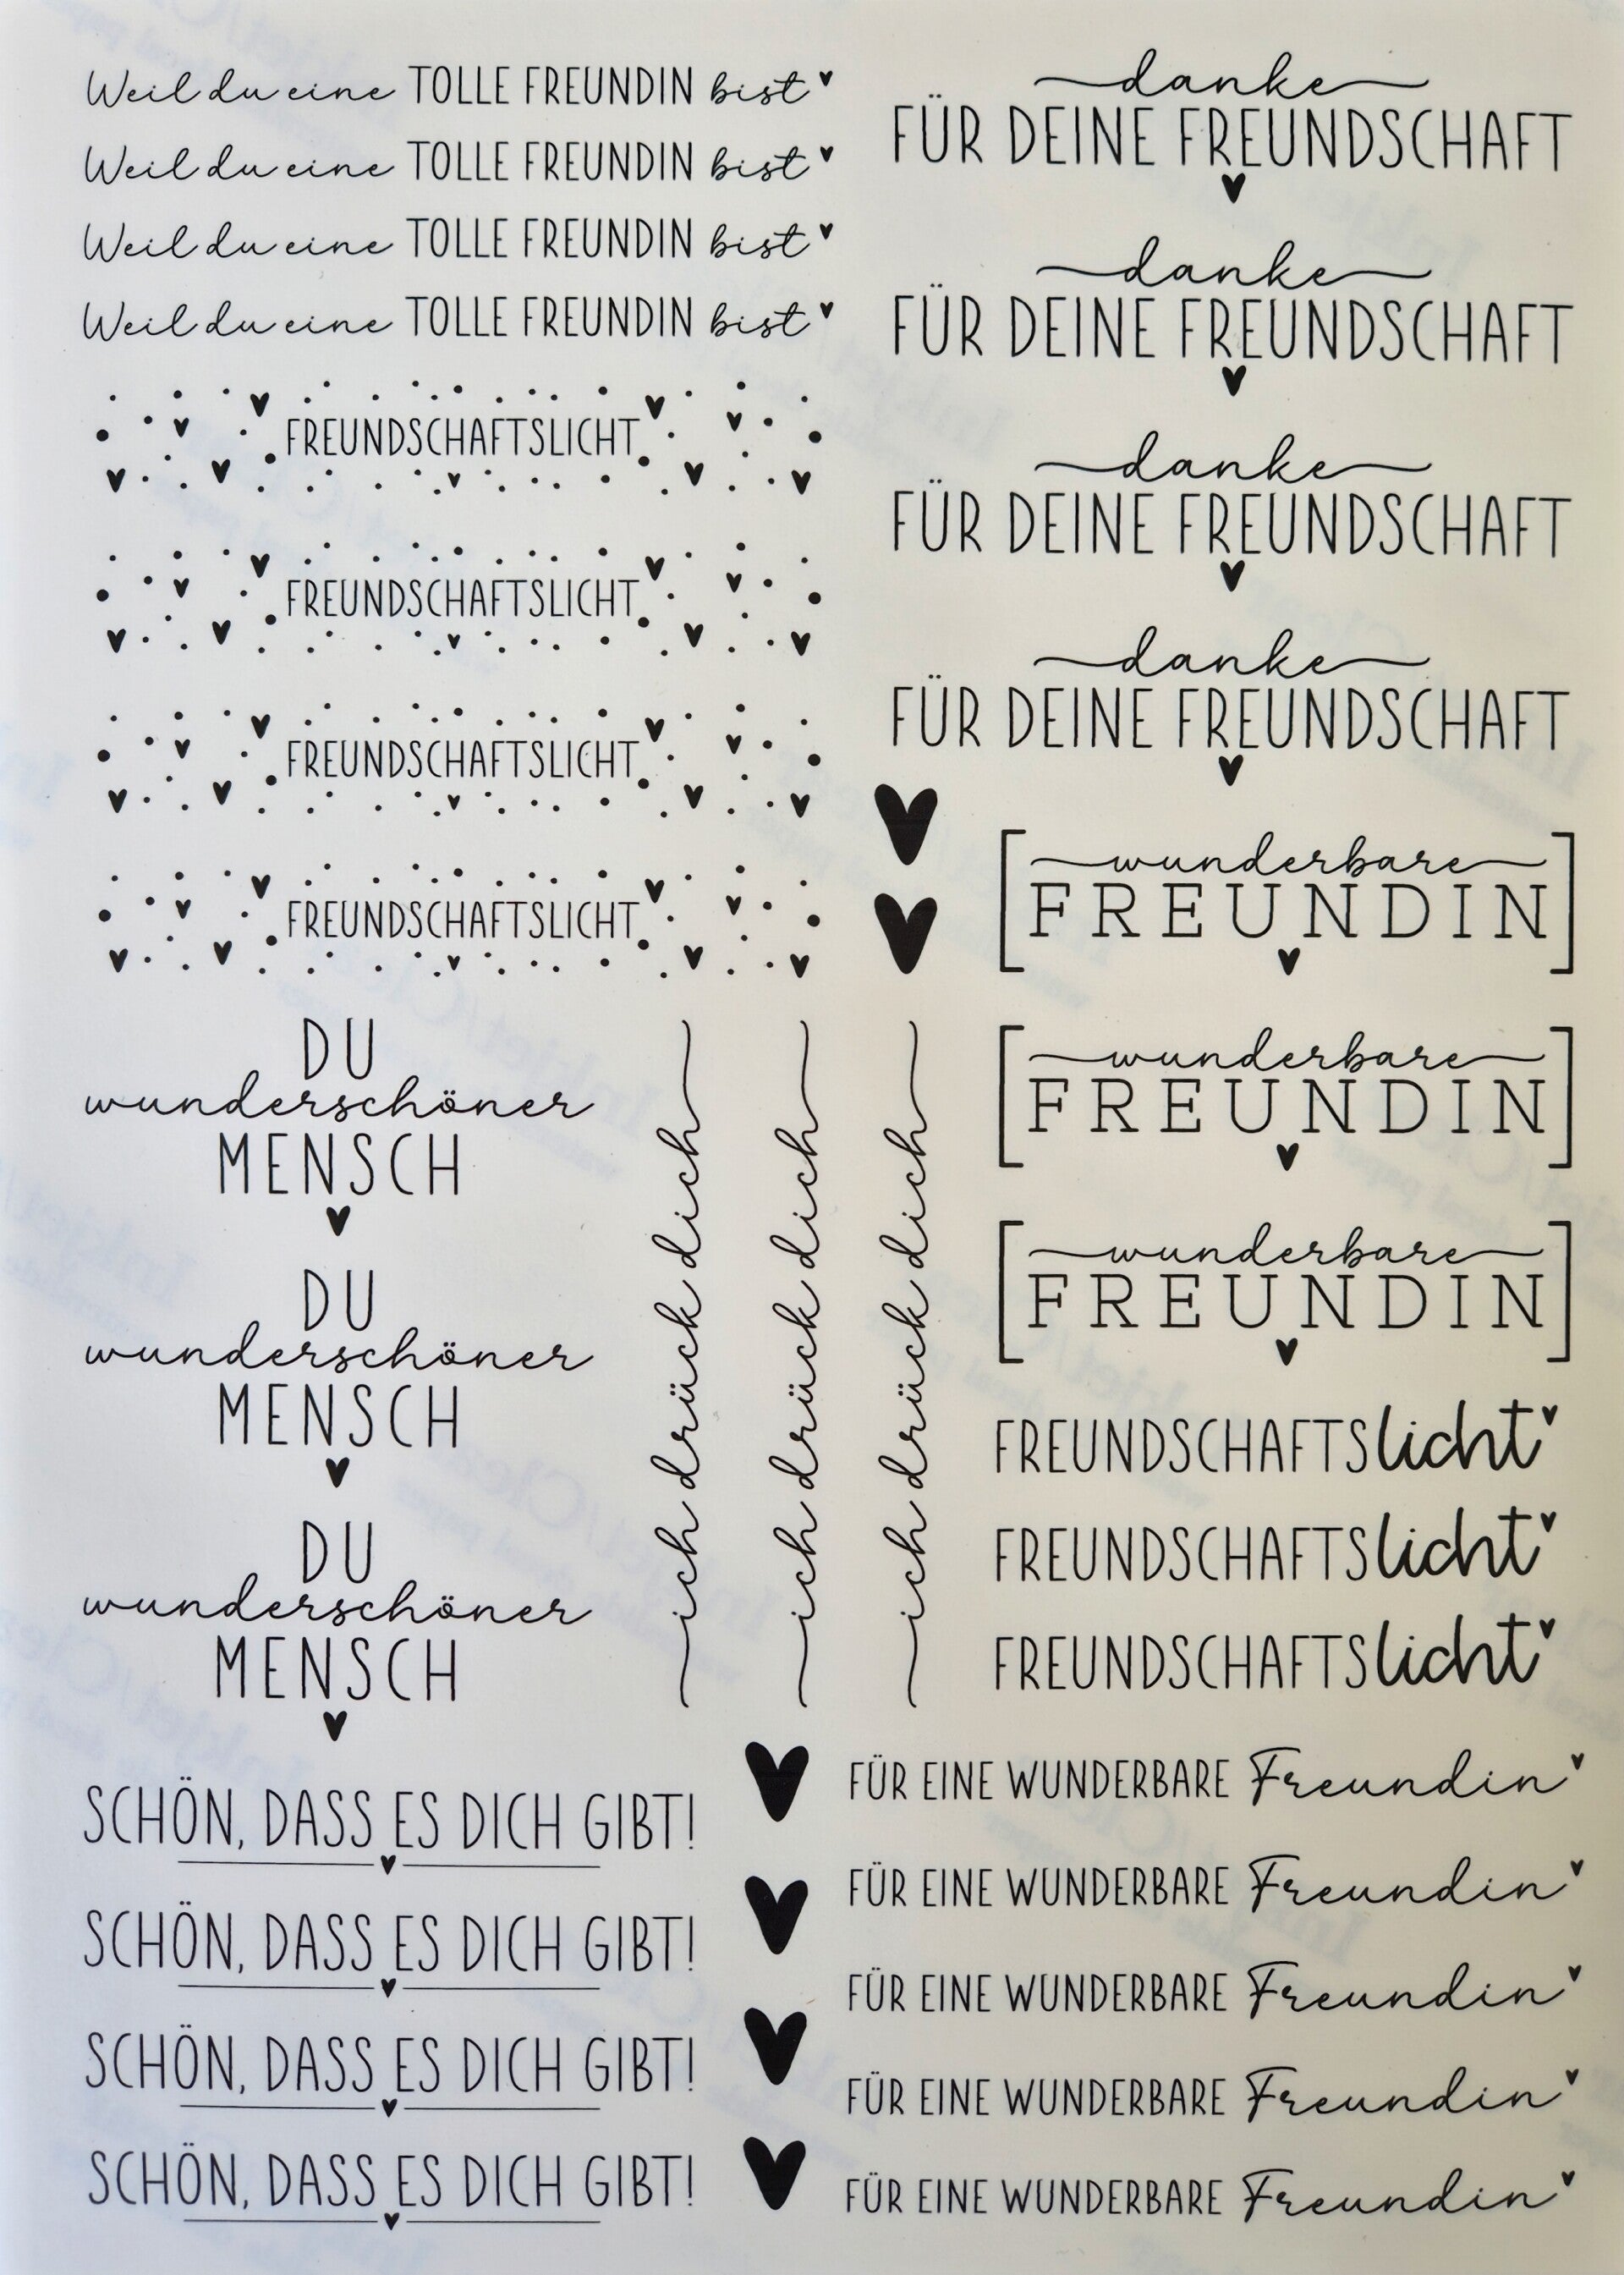 Weil du eine TOLLE FREUNDIN bist
Weil du eine TOLLE FREUNDIN bist
Weil du eine TOLLE FREUNDIN bist
Weil du eine TOLLE FREUNDIN bist
FREUNDSCHAFTSLICHT
FREUNDSCHAFTSLICHT
FREUNDSCHAFTSLICHT
FREUNDSCHAFTSLICHT
danke
FÜR DEINE FREUNDSCHAFT
danke
FÜR DEINE FREUNDSCHAFT
danke
FÜR DEINE FREUNDSCHAFT
danke
FÜR DEINE FREUNDSCHAFT
wunderbare
FREUNDIN
wunderbare
FREUNDIN
wunderbare
FREUNDIN
DU
wunderschöner
MENSCH
DU
wunderschöner
MENSCH
DU
wunderschöner
MENSCH
ich drück dich
ich drück dich
ich drück dich
FREUNDSCHAFTSlicht
FREUNDSCHAFTSlicht
FREUNDSCHAFTSlicht
SCHÖN, DASS ES DICH GIBT!
SCHÖN, DASS ES DICH GIBT!
SCHÖN, DASS ES DICH GIBT!
SCHÖN, DASS ES DICH GIBT!
FÜR EINE WUNDERBARE Freundin
FÜR EINE WUNDERBARE Freundin
FÜR EINE WUNDERBARE Freundin
FÜR EINE WUNDERBARE Freundin
FÜR EINE WUNDERBARE Freundin